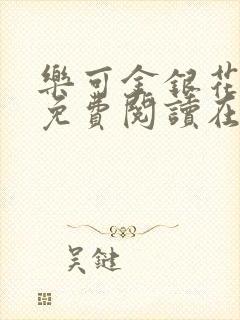 樂可金銀花
免費閱讀在
吳鍵